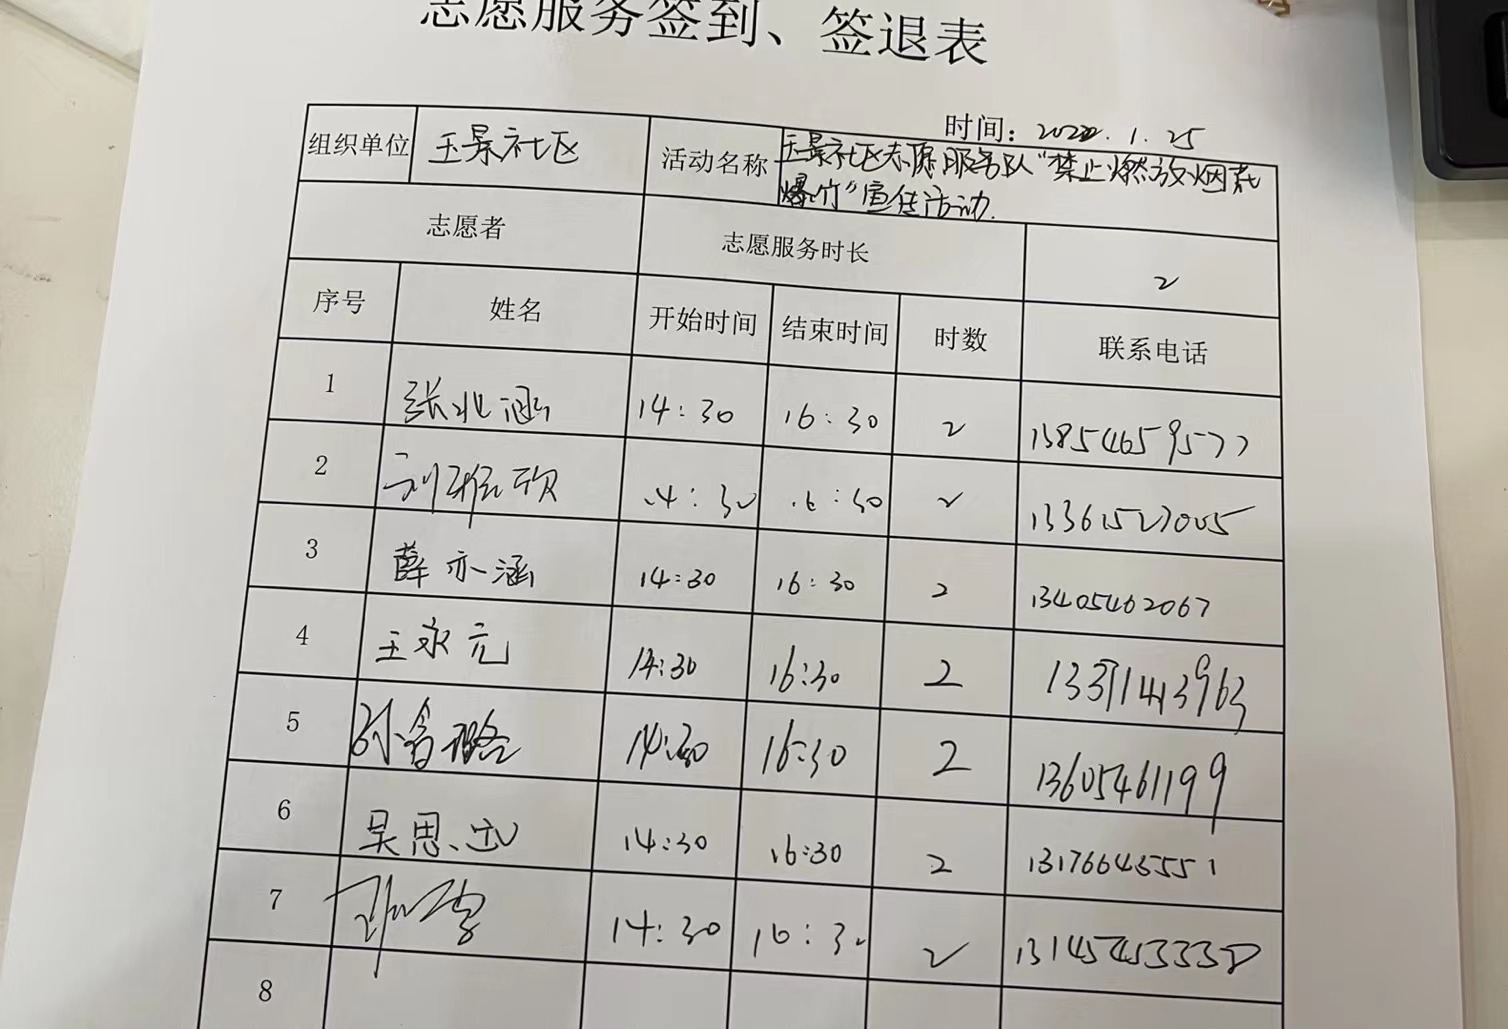 志愿服务签到、签退表
时间：2022.1.25
组织单位 玉景社区 活动名称 玉景社区志愿服务队“禁止燃放烟花
爆竹”宣传活动.
志愿者 志愿服务时长 2
序号 姓名 开始时间 结束时间 时数 联系电话
1 张北涵 14:30 16:30 2 13854659577
2 刘雅欣 14:30 16:30 2 13361527005
3 薛亦涵 14:30 16:30 2 13405462067
4 王永元 14:30 16:30 2
5 14:30 16:30 2 13605461199
6 吴思 14:30 16:30 2 13176645551
7 14:30 16:30 2
8